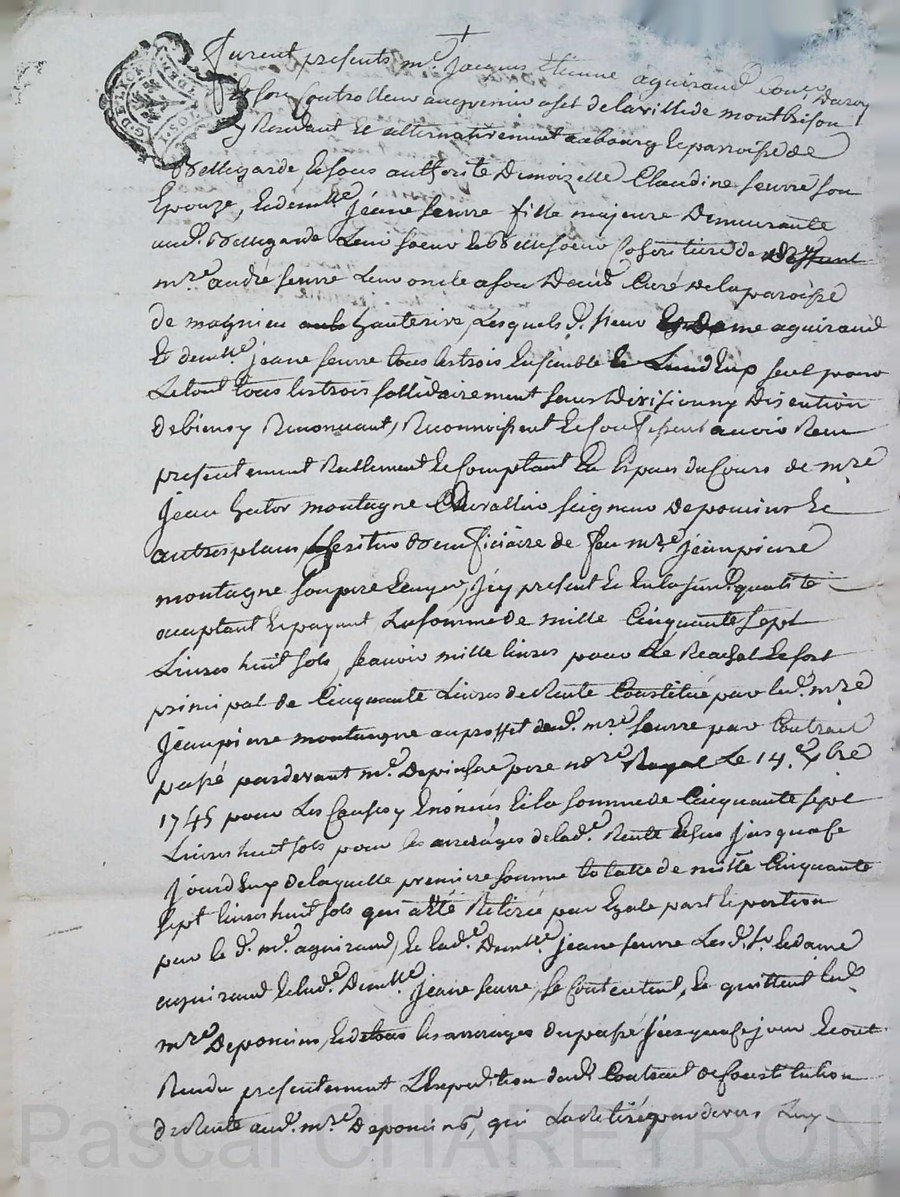 furent presents mr. Jacques Etienne aguiraud Coner. du roy
Et son Controlleur au grenier a sel de la ville de montbrison
y Residant et alternativement au bourg et paroisse de
Bellegarde, Et sous authorité Demoizelle Claudine seurre son
Epouze, Et demlle. Jeane seurre fille majeure Demeurante
aud. Bellegarde Leur soeur et Bellesoeur Coheritiere de
mre andre seurre Leur oncle a son Deceds Curé de la paroisse
de magnieu hauterive, Lesquels d. sieur Et Dame aguiraud
Et demlle Jeane seurre tous les trois Ensemble Et L'un d'eux seul pour
Le tout tous les trois sollidairement sans Division ny Discution
de biens y Renoncant, Reconnoissent et Confessent avoir Reeu
presentement Reellement et Comptant En Especes du Cours de mre
Jean hector montagne Chevallier seigneur de poncins et
autres places heritier Beneficiaire de feu mre Jean pierre
montagne son pere Ecuyer, Icy present et En la susd. qualité
acceptant Et payant, La somme de mille Cinquante sept
Livres huit sols, scavoir mille livres pour Le Reachat et sort
principal de Cinquante Livres de Rente Constitué par led. mre
Jean pierre montaigne au proffit dud. mre seurre par Contract
passé pardevant me. Depinhac pere nore Royal Le 14e. xbre
1745 pour Les Causes y Enoncées Et la somme de Cinquante sept
Livres huit sols pour les arrerages de lad. Rente Echus Jusqua ce
Jourd'huy de laquelle premiere somme totalle de mille Cinquante
sept livres huit sols qui a été Retirée par Egale part et portion
par le d. mr. aguiraud, et lad. Demlle Jeane seurre Les d. sr. Et dame
aguiraud Et lad. Demlle. Jeane seurre, se Contentent, Et quittent led.
mre Deponcins, Et de tous les arrerages du passé Jusqua ce jour Et ont
Rendu presentement L'Expedition dud. Contract de Constitution
de Rente aud. mre Deponcins, qui La Retiré pardevers Luy
Pascal CHAREYRON